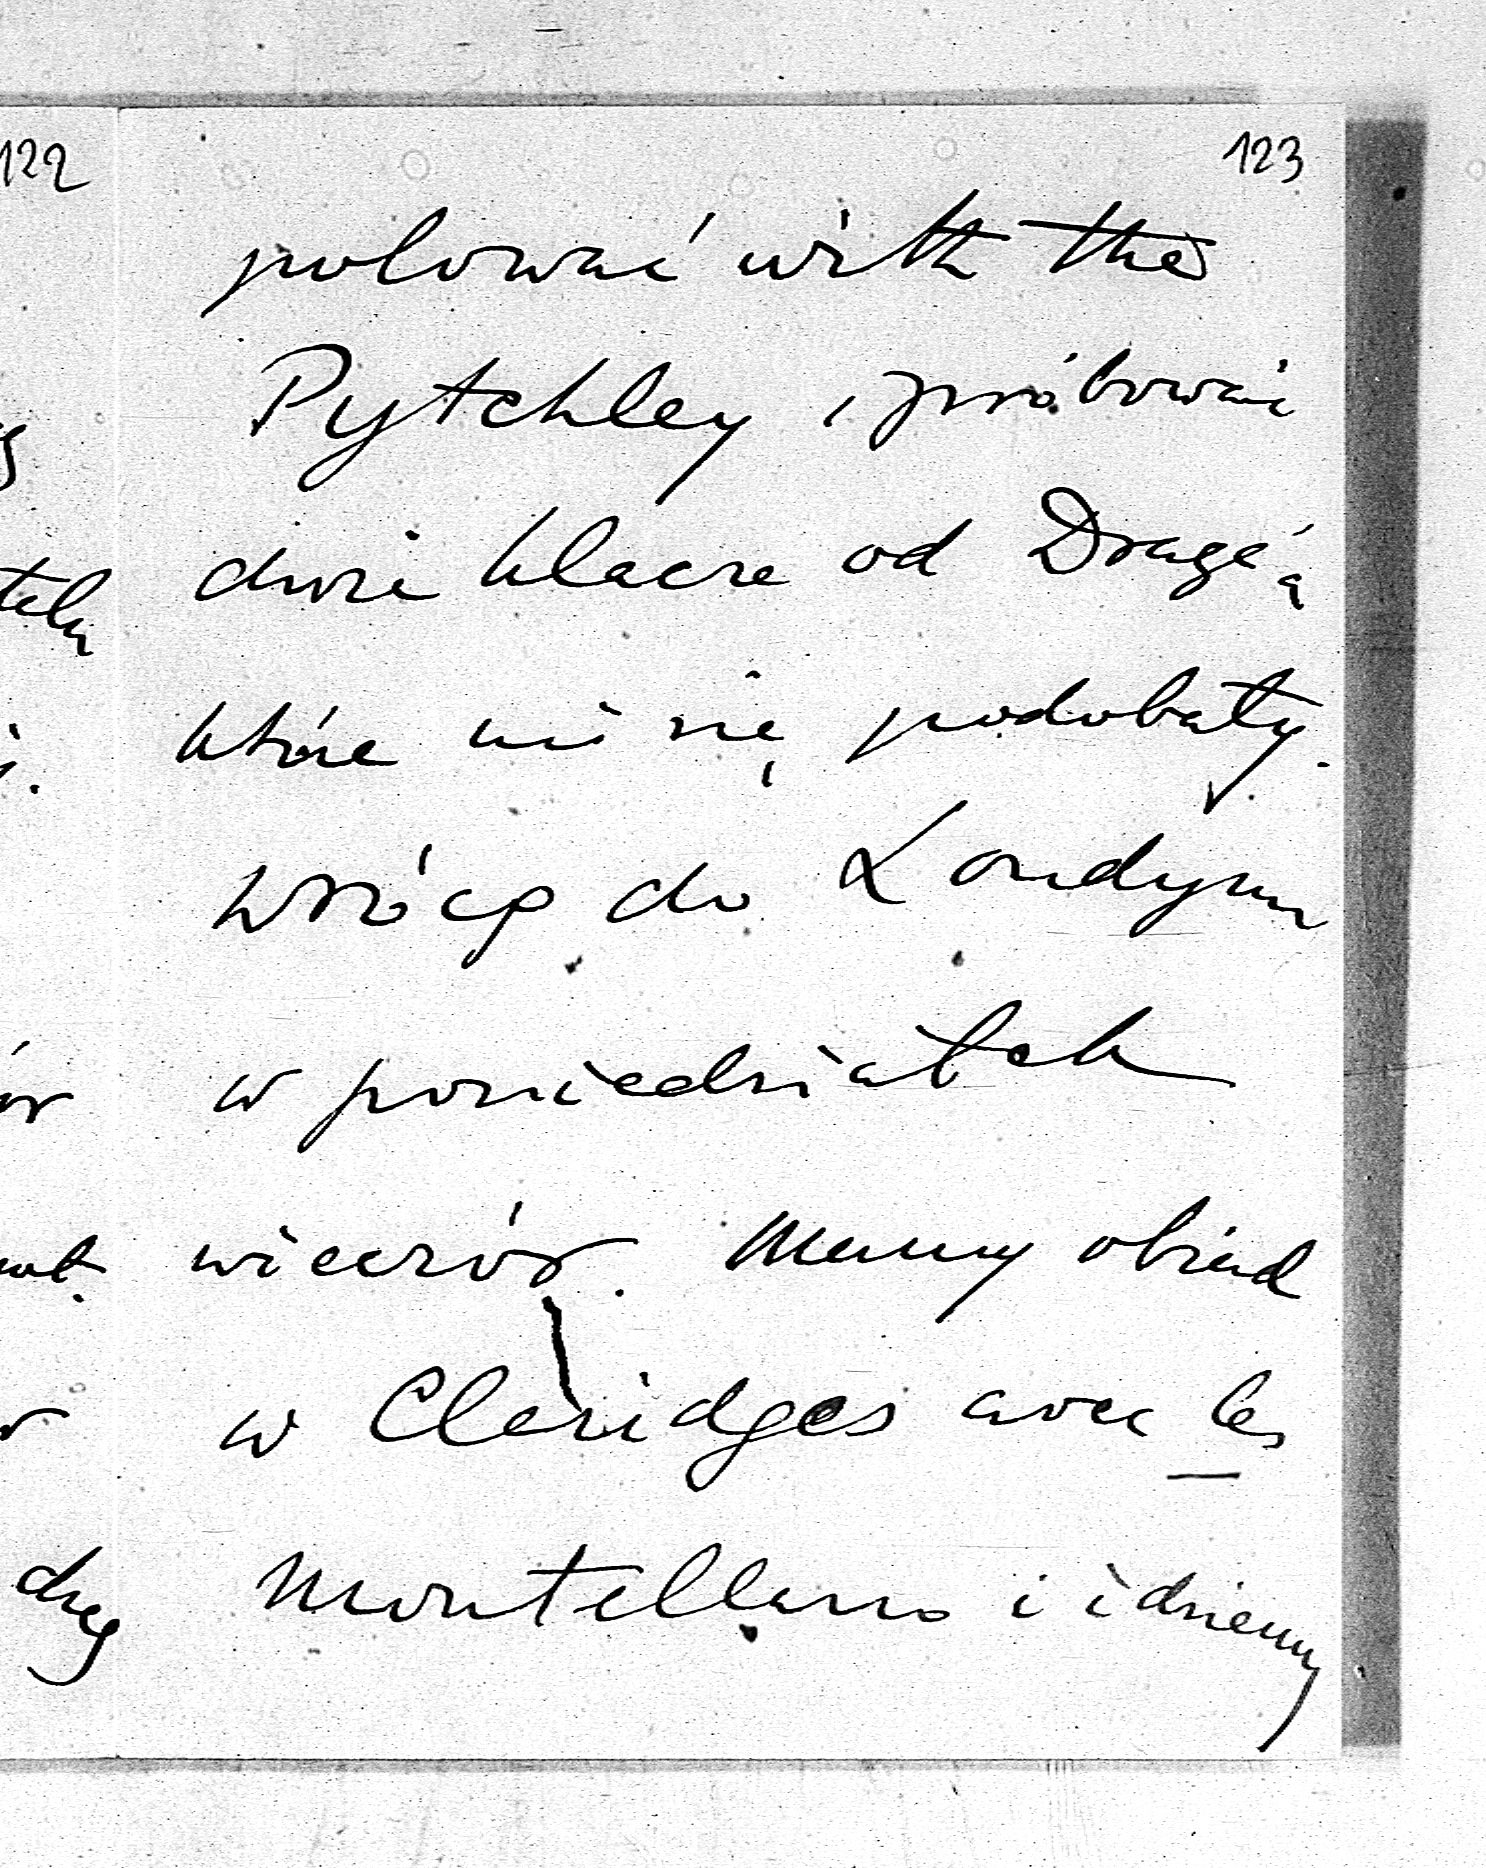 122
123
polować with the
Pytchley i próbować
dwie klacze od Dragé'a
które mi się podobały.
Wrócę do Londynu
w poniedziałek
wieczór. Mamy obiad
w Claridges avec les
Montellano i idziemy